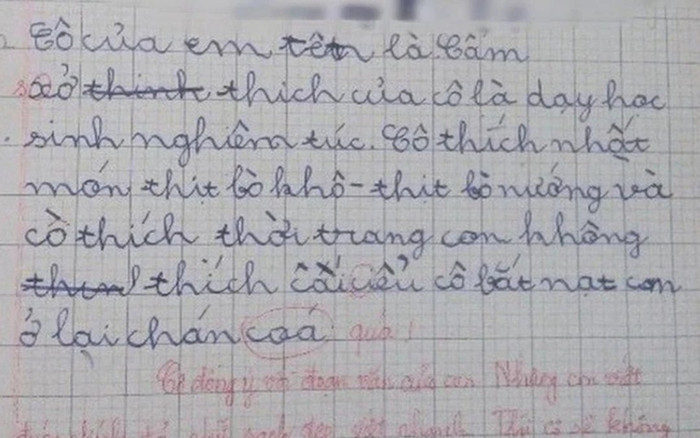 Cô của em tên là Cẩm
sở thinh thich của cô là dạy học
sinh nghiêm túc. Cô thích nhất
món thịt bò khô - thịt bò nướng và
cô thích thời trang con không
thích cái cô bắt nạt con
ở lại chán coá quá!
Cô đồng ý với đoạn văn của con Nhưng con viết
Thì cô sẽ không